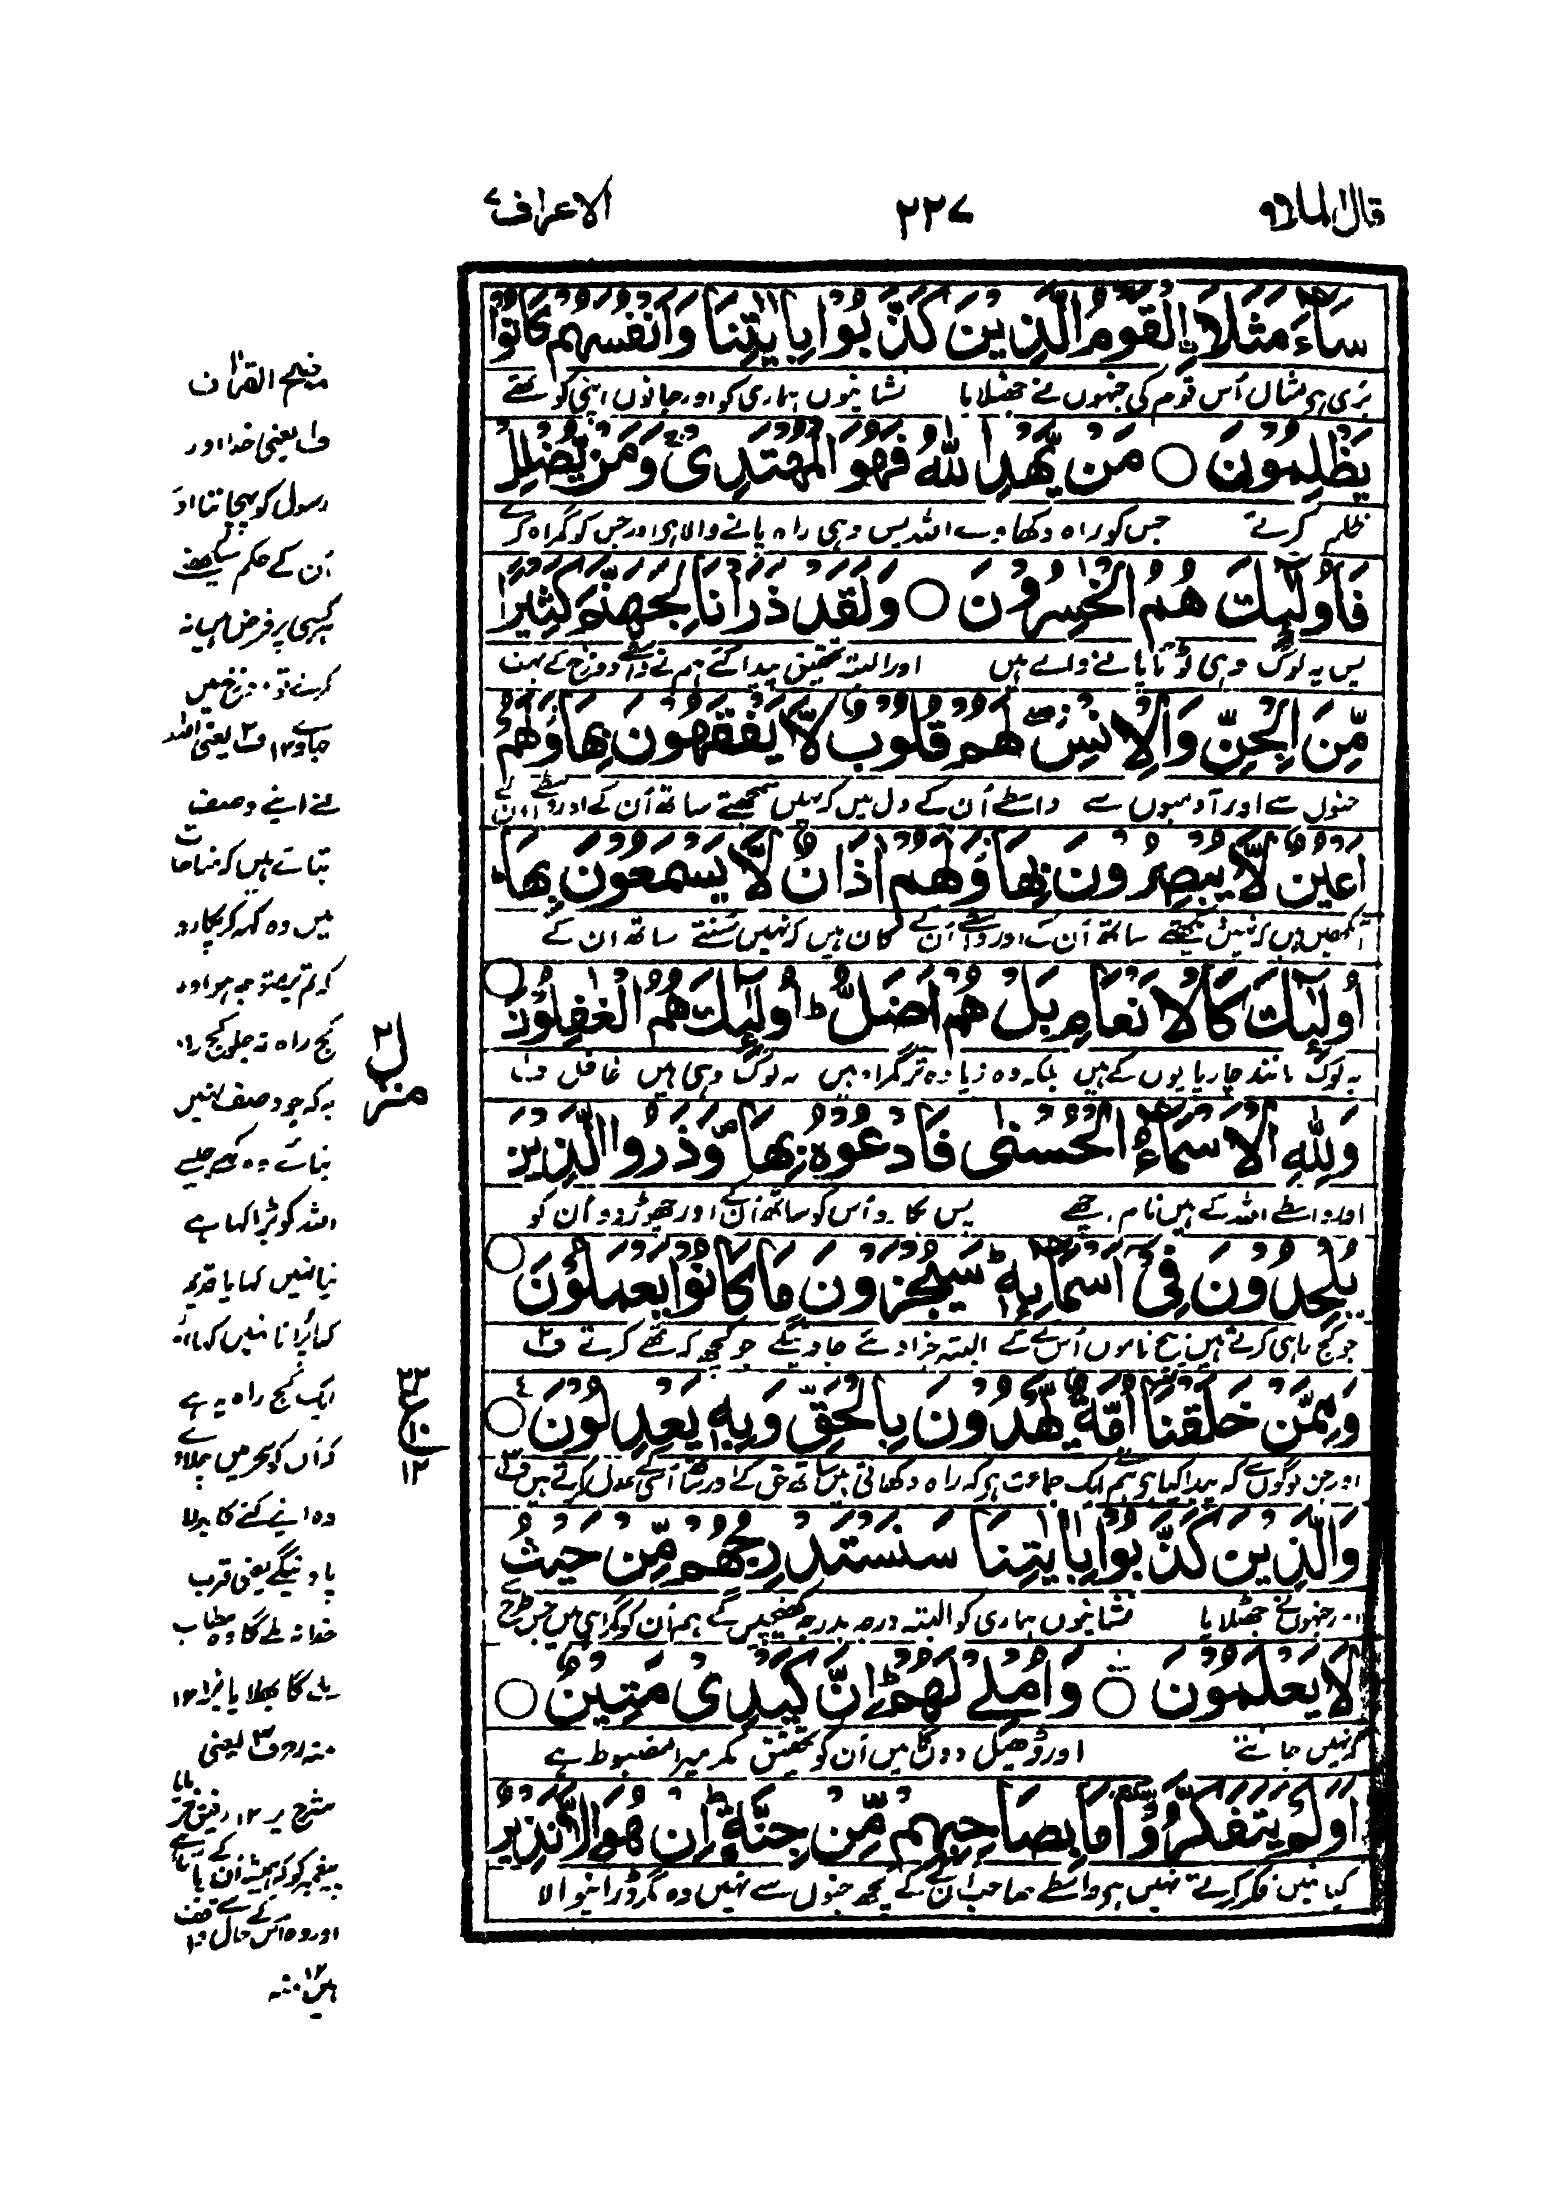 قال الملا ٩
٢٢٧
الاعراف ٧
سَآءَ مَثَلَا ِۨالْقَوْمُ الَّذِيْنَ كَذَّبُوْا بِاٰيٰتِنَا وَاَنْفُسَهُمْ كَانُوْا
بری ہی مثال اُس قوم کی جنہوں نے جھٹلایا نشانیوں ہماری کو اور جانوں اپنی کو تھے
يَظْلِمُوْنَ ○ مَنْ يَّهْدِ اللّٰهُ فَهُوَ الْمُهْتَدِىْ ۚ وَمَنْ يُّضْلِلْ
ظلم کرتے جس کو راہ دکھاوے اللہ پس وہی راہ پانے والا ہی اور جس کو گمراہ کرے
فَاُولٰٓئِكَ هُمُ الْخٰسِرُوْنَ ○ وَلَقَدْ ذَرَاْنَا لِجَهَنَّمَ كَثِيْرًا
پس یہ لوگ وہی ٹوٹا پانے والے ہیں اور البتہ تحقیق پیدا کئے ہم نے واسطے دوزخ کے بہت
مِّنَ الْجِنِّ وَالْاِنْسِ ۖ لَهُمْ قُلُوْبٌ لَّا يَفْقَهُوْنَ بِهَا وَلَهُمْ
جنوں سے اور آدمیوں سے واسطے اُن کے دل ہیں کہ نہیں سمجھتے ساتھ اُن کے اور واسطے اُن کے
اَعْيُنٌ لَّا يُبْصِرُوْنَ بِهَا وَلَهُمْ اٰذَانٌ لَّا يَسْمَعُوْنَ بِهَا ؕ
آنکھیں ہیں کہ نہیں دیکھتے ساتھ اُن کے اور واسطے اُن کے کان ہیں کہ نہیں سُنتے ساتھ ان کے
اُولٰٓئِكَ كَالْاَنْعَامِ بَلْ هُمْ اَضَلُّ ؕ اُولٰٓئِكَ هُمُ الْغٰفِلُوْنَ ○
یہ لوگ مانند چارپایوں کے ہیں بلکہ وہ زیادہ تر گمراہ ہیں یہ لوگ وہی ہیں غافل ف۱
وَلِلّٰهِ الْاَسْمَآءُ الْحُسْنٰى فَادْعُوْهُ بِهَا ۪ وَذَرُوا الَّذِيْنَ
اور واسطے اللہ کے ہیں نام اچھے پس پکارو اُس کو ساتھ اُن کے اور چھوڑ دو اُن کو
يُلْحِدُوْنَ فِىْٓ اَسْمَآئِهٖ ؕ سَيُجْزَوْنَ مَا كَانُوْا يَعْمَلُوْنَ ○
جو کج راہی کرتے ہیں بیچ ناموں اُس کے البتہ جزا دئے جاویں گے جو کچھ کہ تھے کرتے ف۲
وَمِمَّنْ خَلَقْنَآ اُمَّةٌ يَّهْدُوْنَ بِالْحَقِّ وَبِهٖ يَعْدِلُوْنَ ○ ع
اور جن لوگوں سے کہ پیدا کیا ہی ہم ایک جماعت ہی کہ راہ دکھاتی ہیں ساتھ حق کے اور ساتھ اُسی کے عدل کرتے ہیں ف۳
وَالَّذِيْنَ كَذَّبُوْا بِاٰيٰتِنَا سَنَسْتَدْرِجُهُمْ مِّنْ حَيْثُ
اور جنہوں نے جھٹلایا نشانیوں ہماری کو البتہ درجہ بدرجہ کھینچیں گے ہم اُن کو گمراہی میں جس طرح سے
لَا يَعْلَمُوْنَ ○ وَاُمْلِىْ لَهُمْ ؕ اِنَّ كَيْدِىْ مَتِيْنٌ ○
کہ نہیں جانتے اور ڈھیل دوں گا میں اُن کو تحقیق مکر میرا مضبوط ہے
اَوَلَمْ يَتَفَكَّرُوْا مَا بِصَاحِبِهِمْ مِّنْ جِنَّةٍ ؕ اِنْ هُوَ اِلَّا نَذِيْرٌ
کیا نہیں فکر کرتے نہیں ہی واسطے صاحب اُن کے کے کچھ جنوں سے نہیں وہ مگر ڈرانیوالا
موضح القرآن
ف۱ یعنی خدا اور
رسول کو پہچاننا اور
اُن کے حکم سیکھنے
ہر کسی پر فرض ہیں نہ
کرے تو دوزخ میں
جاوے ۱۲ ف۲ یعنی اللہ
نے اپنے وصف
بتائے ہیں کہ مناجات
میں وہ کہہ کر پکارو
کہ تم پر متوجہ ہو اور
کج راہ نہ چلو کج راہ
یہ کہ جو وصف نہیں
بتائے وہ کہے جیسے
اللہ کو بڑا کہا ہے
نیا نہیں کہا یا قدیم
کہا پُرانا نہیں کہا اور
ایک کج راہ یہ ہے
کہ اُن کو سحر میں چلاوے
وہ اپنے کئے کا بدلا
پاوینگے یعنی قرب
خدا نہ ملے گا وہ مطلب
ملے گا بھلا یا بُرا ۱۲
منہ رح ف۳ یعنی
منزل ٢
٢٢
ع
١٠
١٢